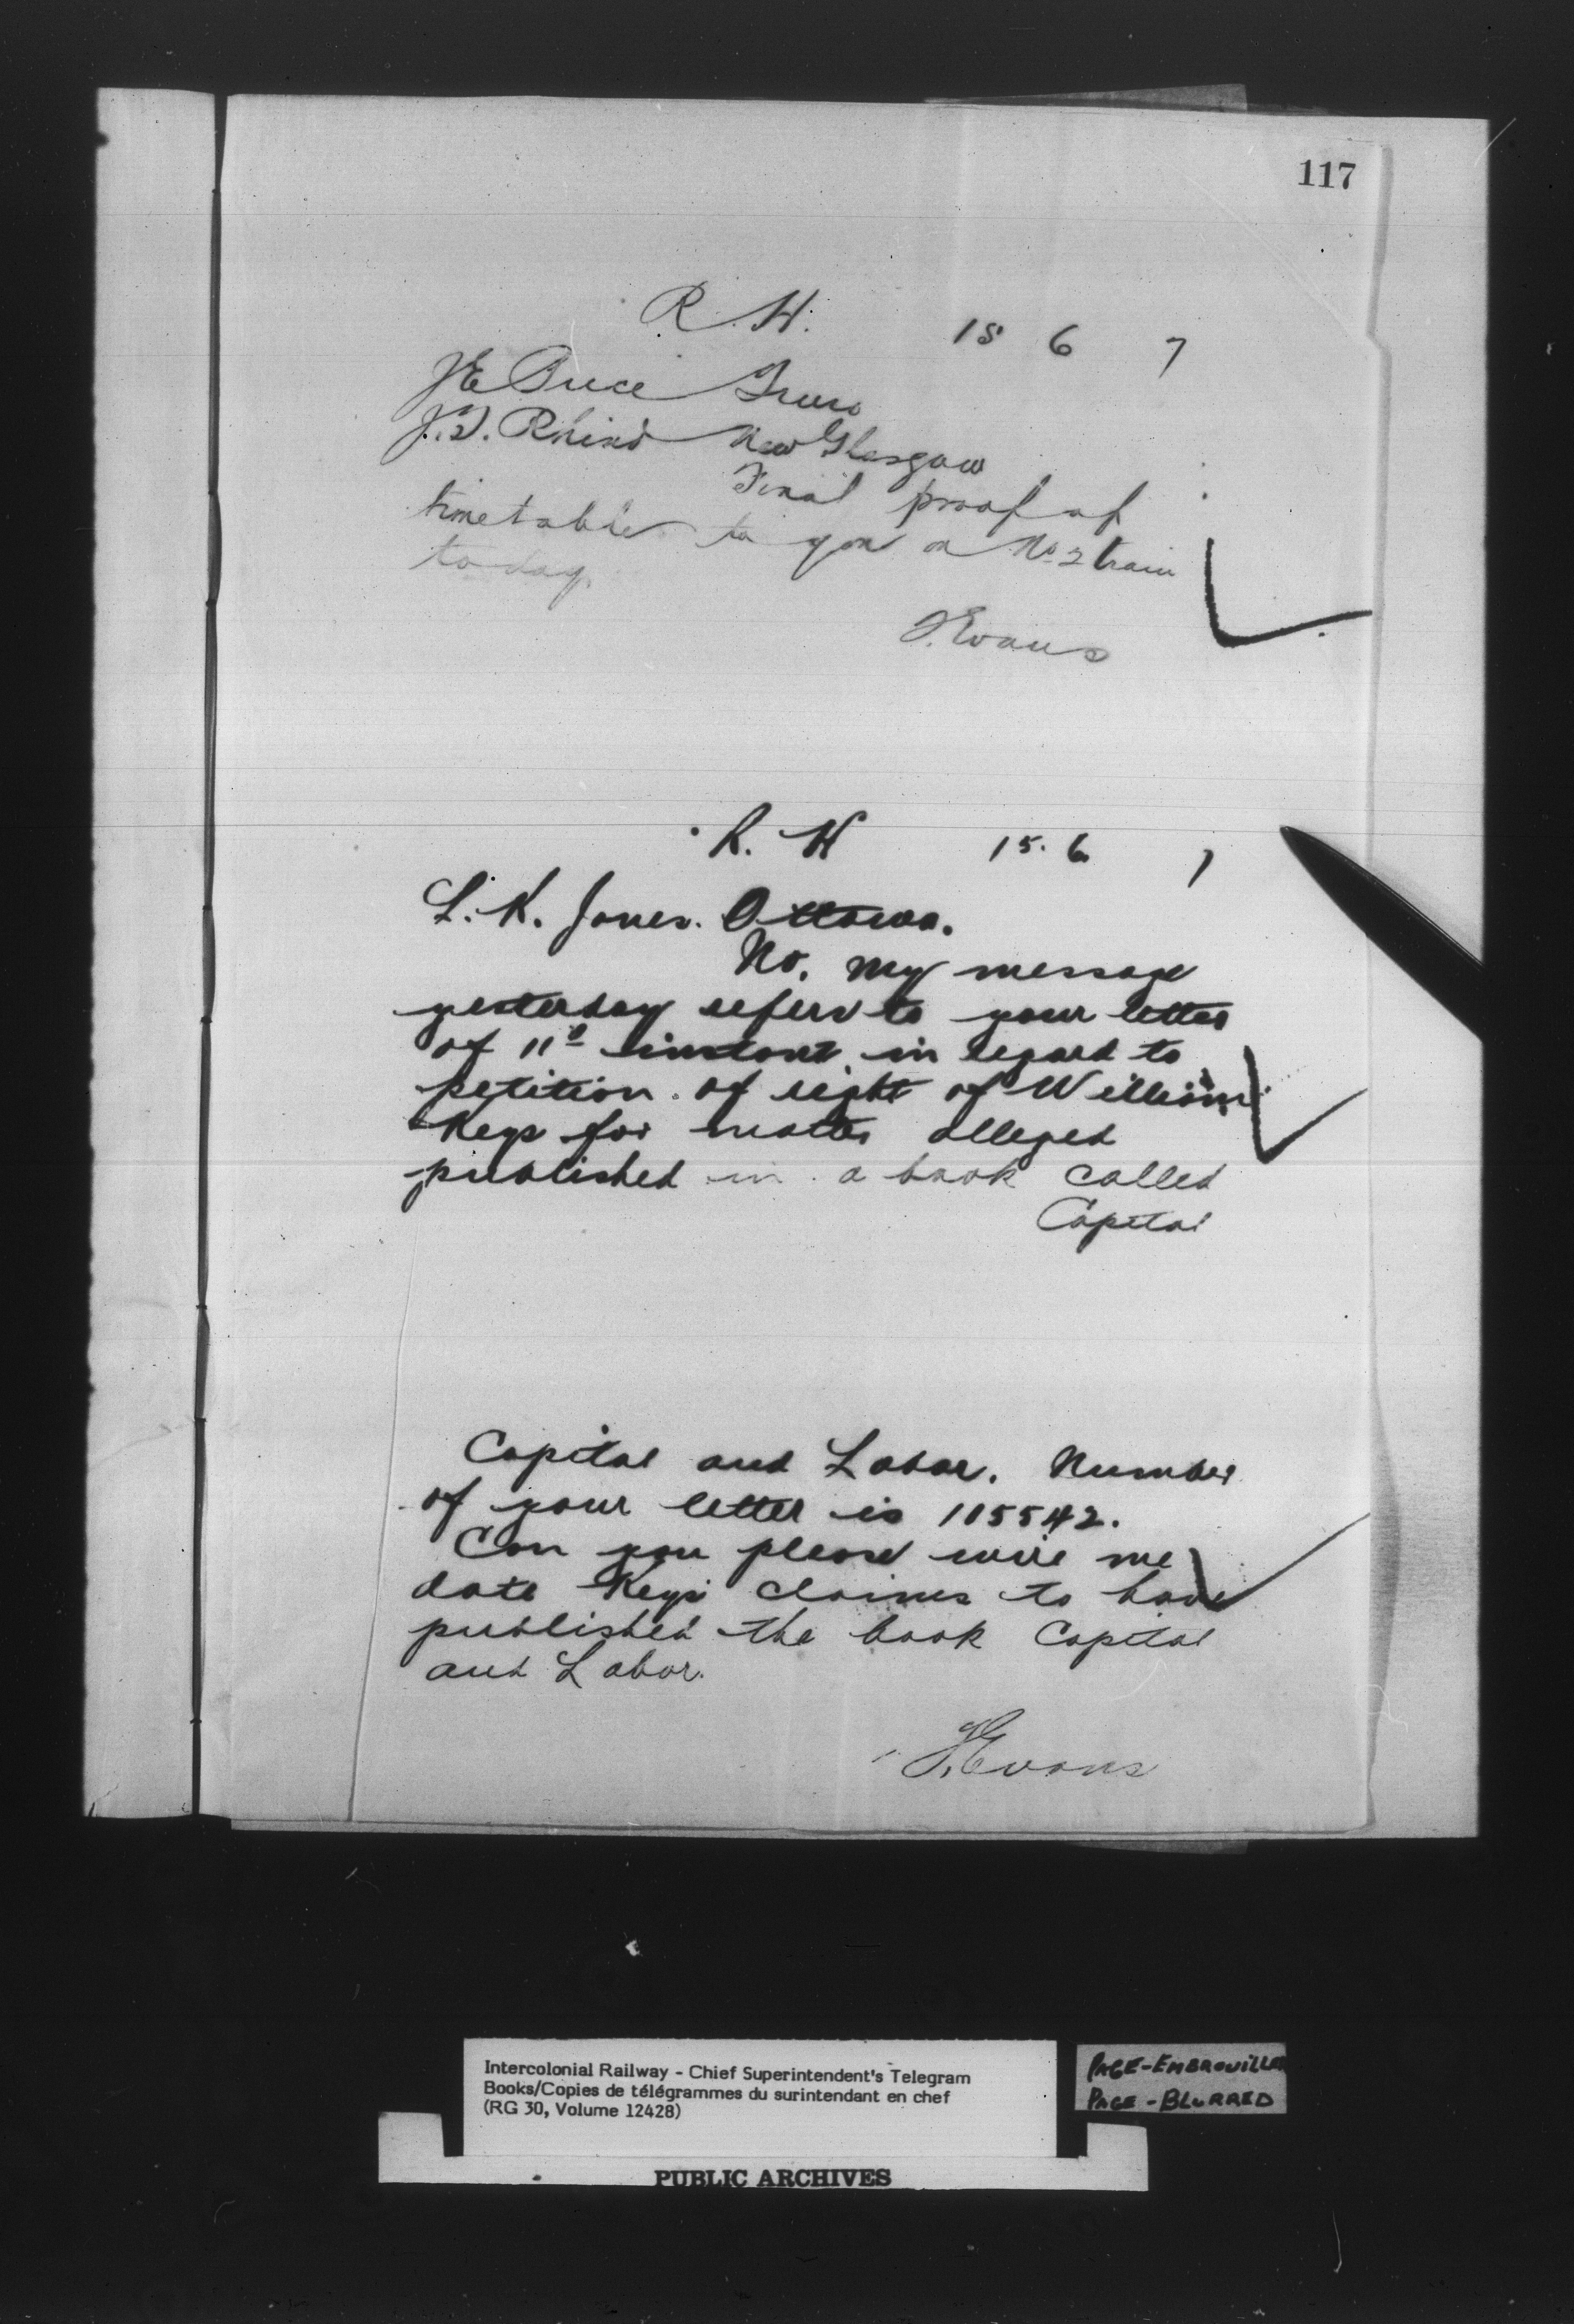 117
R. H. 15 6 7
J E Price Truro
J. D. Rhind New Glasgow
Final proof of
timetable to you on No 2 train
today.
T. Evans
R. H 15. 6 7
L. K. Jones. Ottawa.
No. my message
yesterday refers to your letter
of 11th instant in regard to
petition of right of William
Keys for matter alleged
published in a book called
Capital
Capital and Labor. Number
of your letter is 105542.
Can you please wire me
date Keys claims to have
published the book Capital
and Labor.
T. Evans
Intercolonial Railway - Chief Superintendent's Telegram
Books/Copies de télégrammes du surintendant en chef
(RG 30, Volume 12428)
PAGE-EMBROUILLEE
PAGE-BLURRED
PUBLIC ARCHIVES